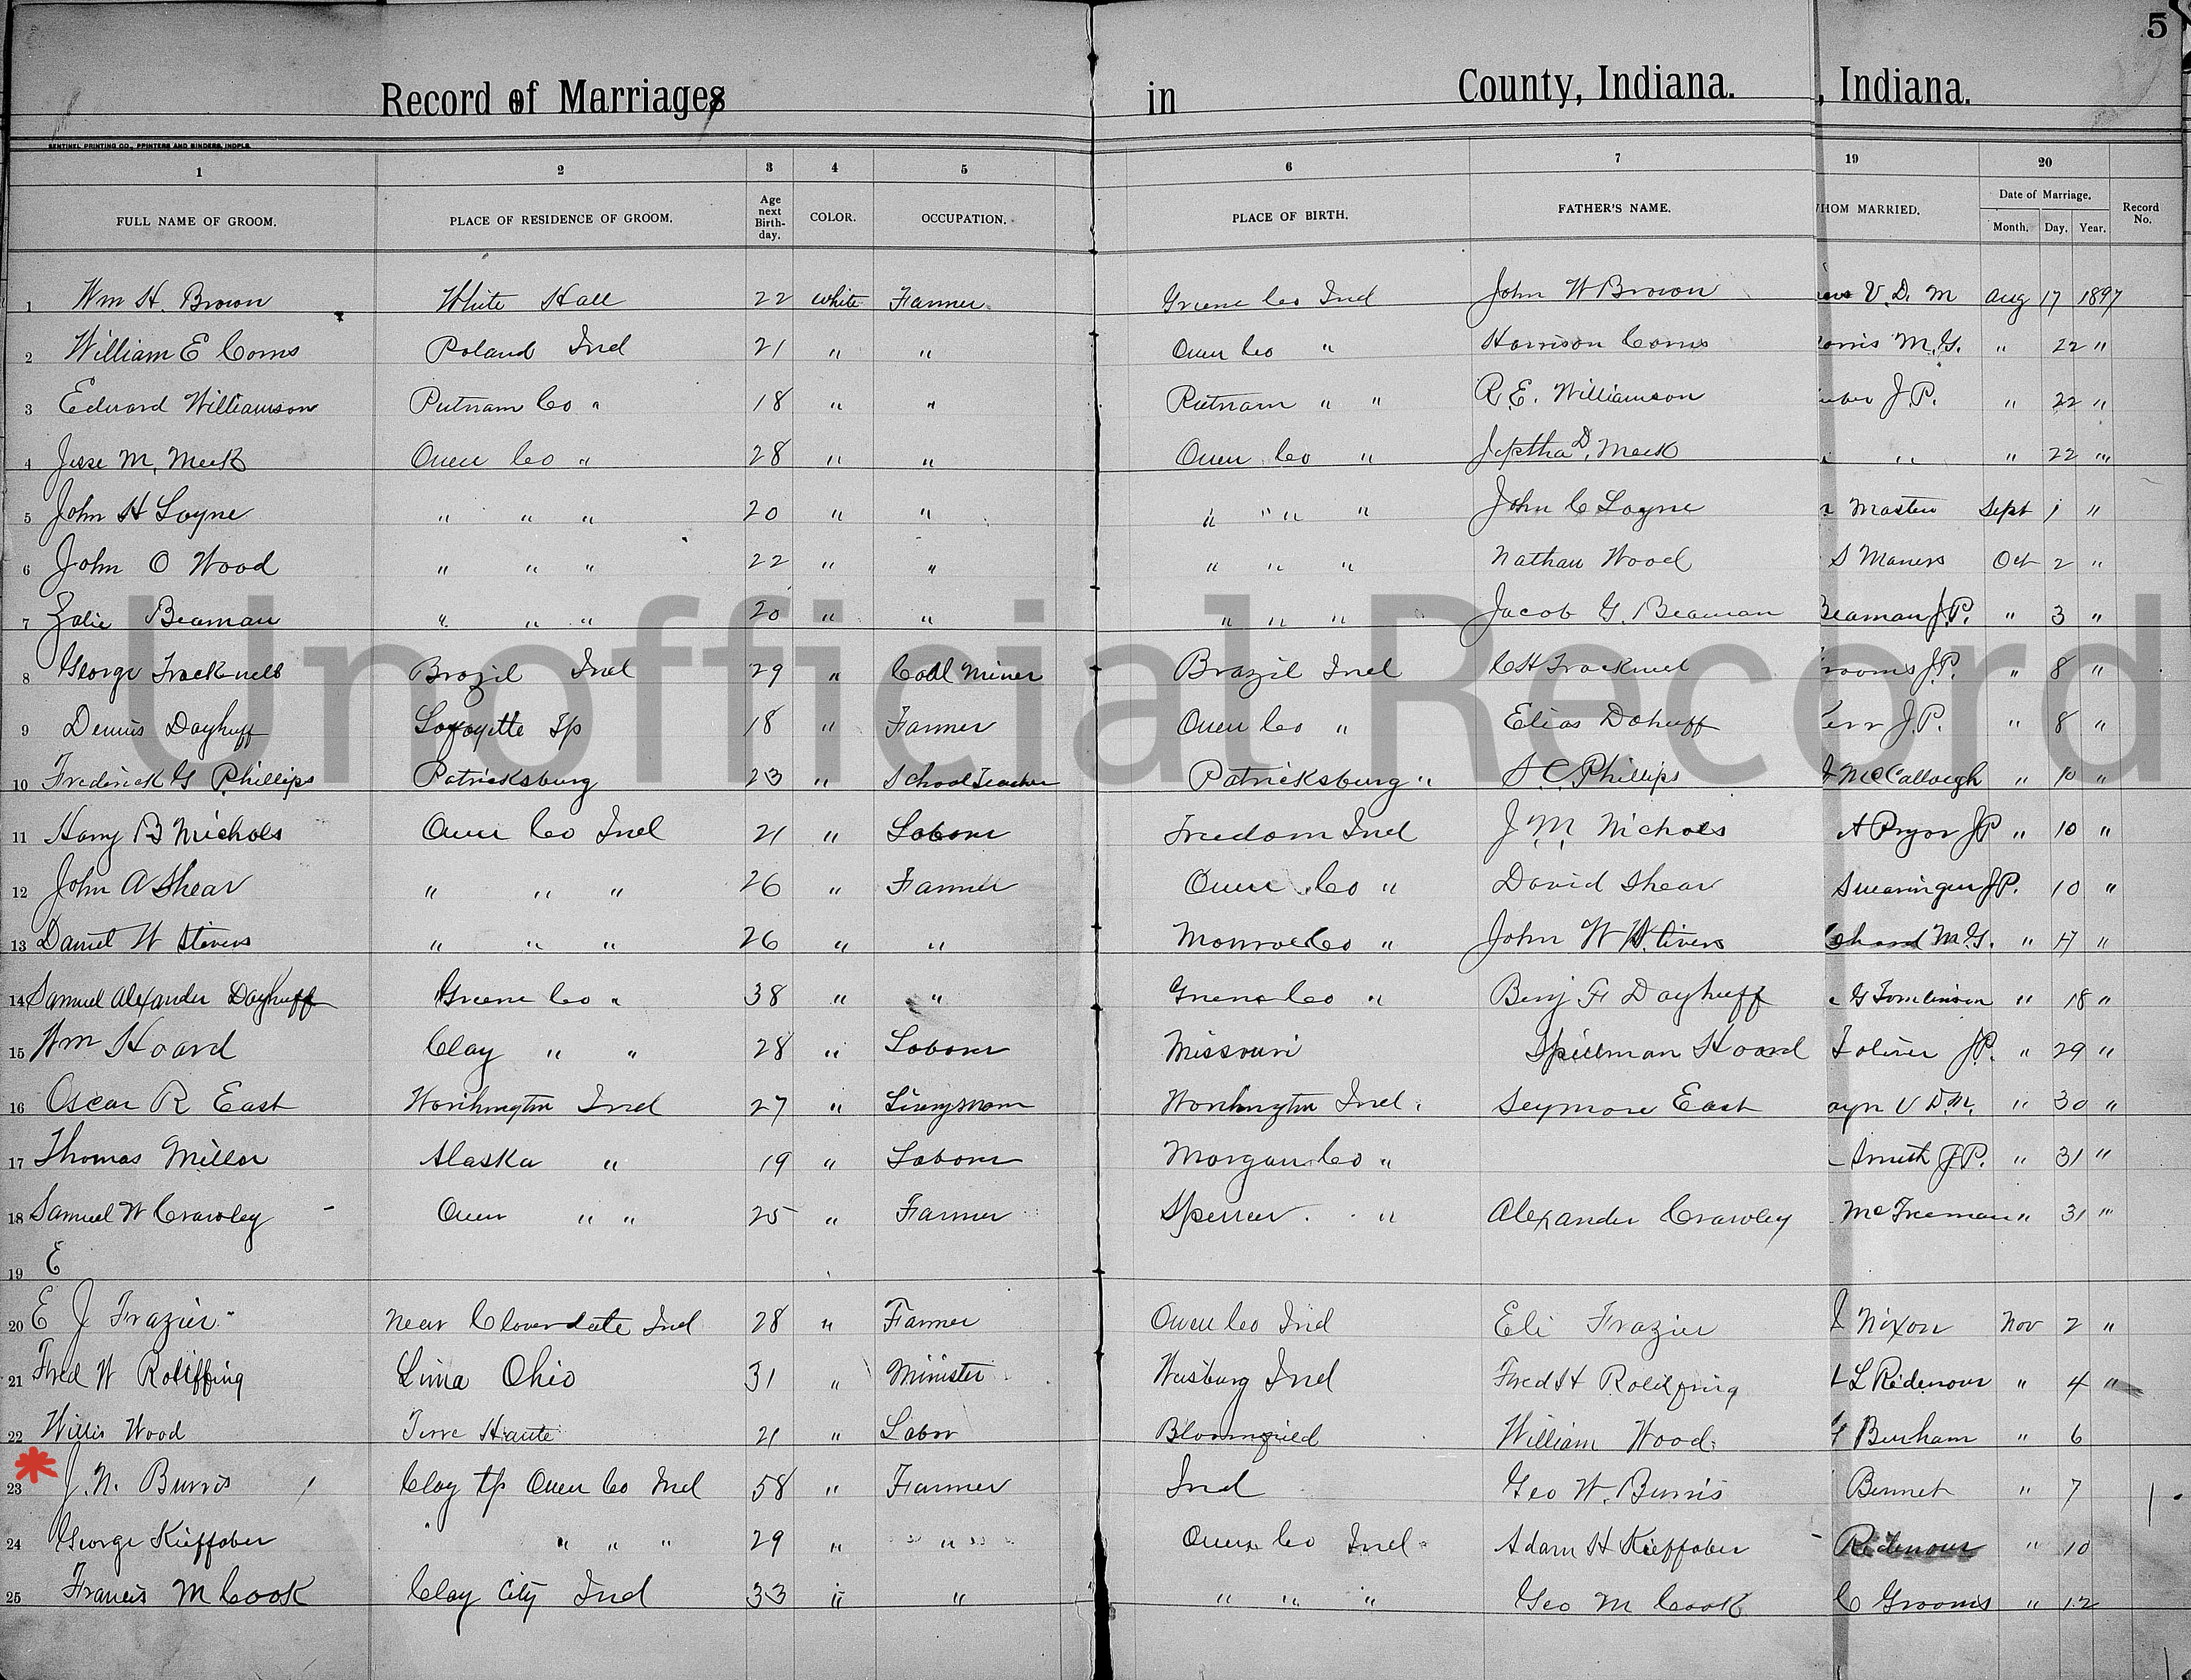 5
Record of Marriages in County, Indiana. , Indiana.
SENTINEL PRINTING CO., PRINTERS AND BINDERS, INDPLS.
1 2 3 4 5 6 7 19 20
FULL NAME OF GROOM. PLACE OF RESIDENCE OF GROOM. Age next Birth-day. COLOR. OCCUPATION. PLACE OF BIRTH. FATHER'S NAME. WHOM MARRIED. Date of Marriage. Month. Day. Year. Record No.
1 Wm H. Brown White Hall 22 white Farmer Greene Co Ind John W Brown V. D. M Aug 17 1897
2 William E Coms Poland Ind 21 " " Owen Co " Harrison Coms orris M.G. " 22 "
3 Edward Williamson Putnam Co " 18 " " Putnam " " R.E. Williamson J.P. " 22 "
4 Jesse M. Meek Owen Co " 28 " " Owen Co " Jeptha D. Meek " " 22 "
5 John H Layne " " " 20 " " " " " " John C Layne Masten Sept 1 "
6 John O Wood " " " 22 " " " " " Nathan Wood S Maners Oct 2 "
7 Zolie Beaman " " " 20 " " " " " Jacob G. Beaman Beaman J.P. " 3 "
8 George Tracknell Brazil Ind 29 " Coal Miner Brazil Ind C H Tracknell rooms J.P. " 8 "
9 Dennis Dayhuff Lafayette Tp 18 " Farmer Owen Co " Elias Dohuff err J.P. " 8 "
10 Frederick G Phillips Patricksburg 23 " School Teacher Patricksburg " S. C. Phillips McCallough " 10 "
11 Harry B Nichols Owen Co Ind 21 " Laborer Freedom Ind J. M. Nichols A Pryor JP " 10 "
12 John A Shear " " " 26 " Farmer Owen Co " David Shear Swearingen J.P. 10 "
13 Daniel W Stivers " " " 26 " " Monroe Co " John W Stivers M.G. " 17 "
14 Samuel Alexander Dayhuff Greene Co " 38 " " Greene Co " Benj F Dayhuff G Tomlinson " 18 "
15 Wm Hoard Clay " " 28 " Laborer Missouri Spillman Hoard Toliver J.P. " 29 "
16 Oscar R East Worthington Ind 27 " Liveryman Worthington Ind. Seymore East ayn V.D.M. " 30 "
17 Thomas Miller Alaska " 19 " Laborer Morgan Co " Smith J.P. " 31 "
18 Samuel W Crawley Owen " " 25 " Farmer Spencer " Alexander Crawley McFreeman " 31 "
19 E
20 E J Frazier Near Cloverdale Ind 28 " Farmer Owen Co Ind Eli Frazier Nixon Nov 2 "
21 Fred W Roliffing Lima Ohio 31 " Minister Ind Fred H L Ridenour " 4 "
22 Willis Wood Terre Haute 21 " Labor Bloomfield William Wood Burham " 6
23 J. N. Burris Clay tp Owen Co Ind 58 " Farmer Ind Geo W. Burris Bennet " 7
24 George Kieffaber " " " " 29 " " Owen Co Ind Adam H Kieffaber Ridenour " 10
25 Francis M Cook Clay City Ind 33 " " " " " Geo M Cook C Grooms " 12
Unofficial Record